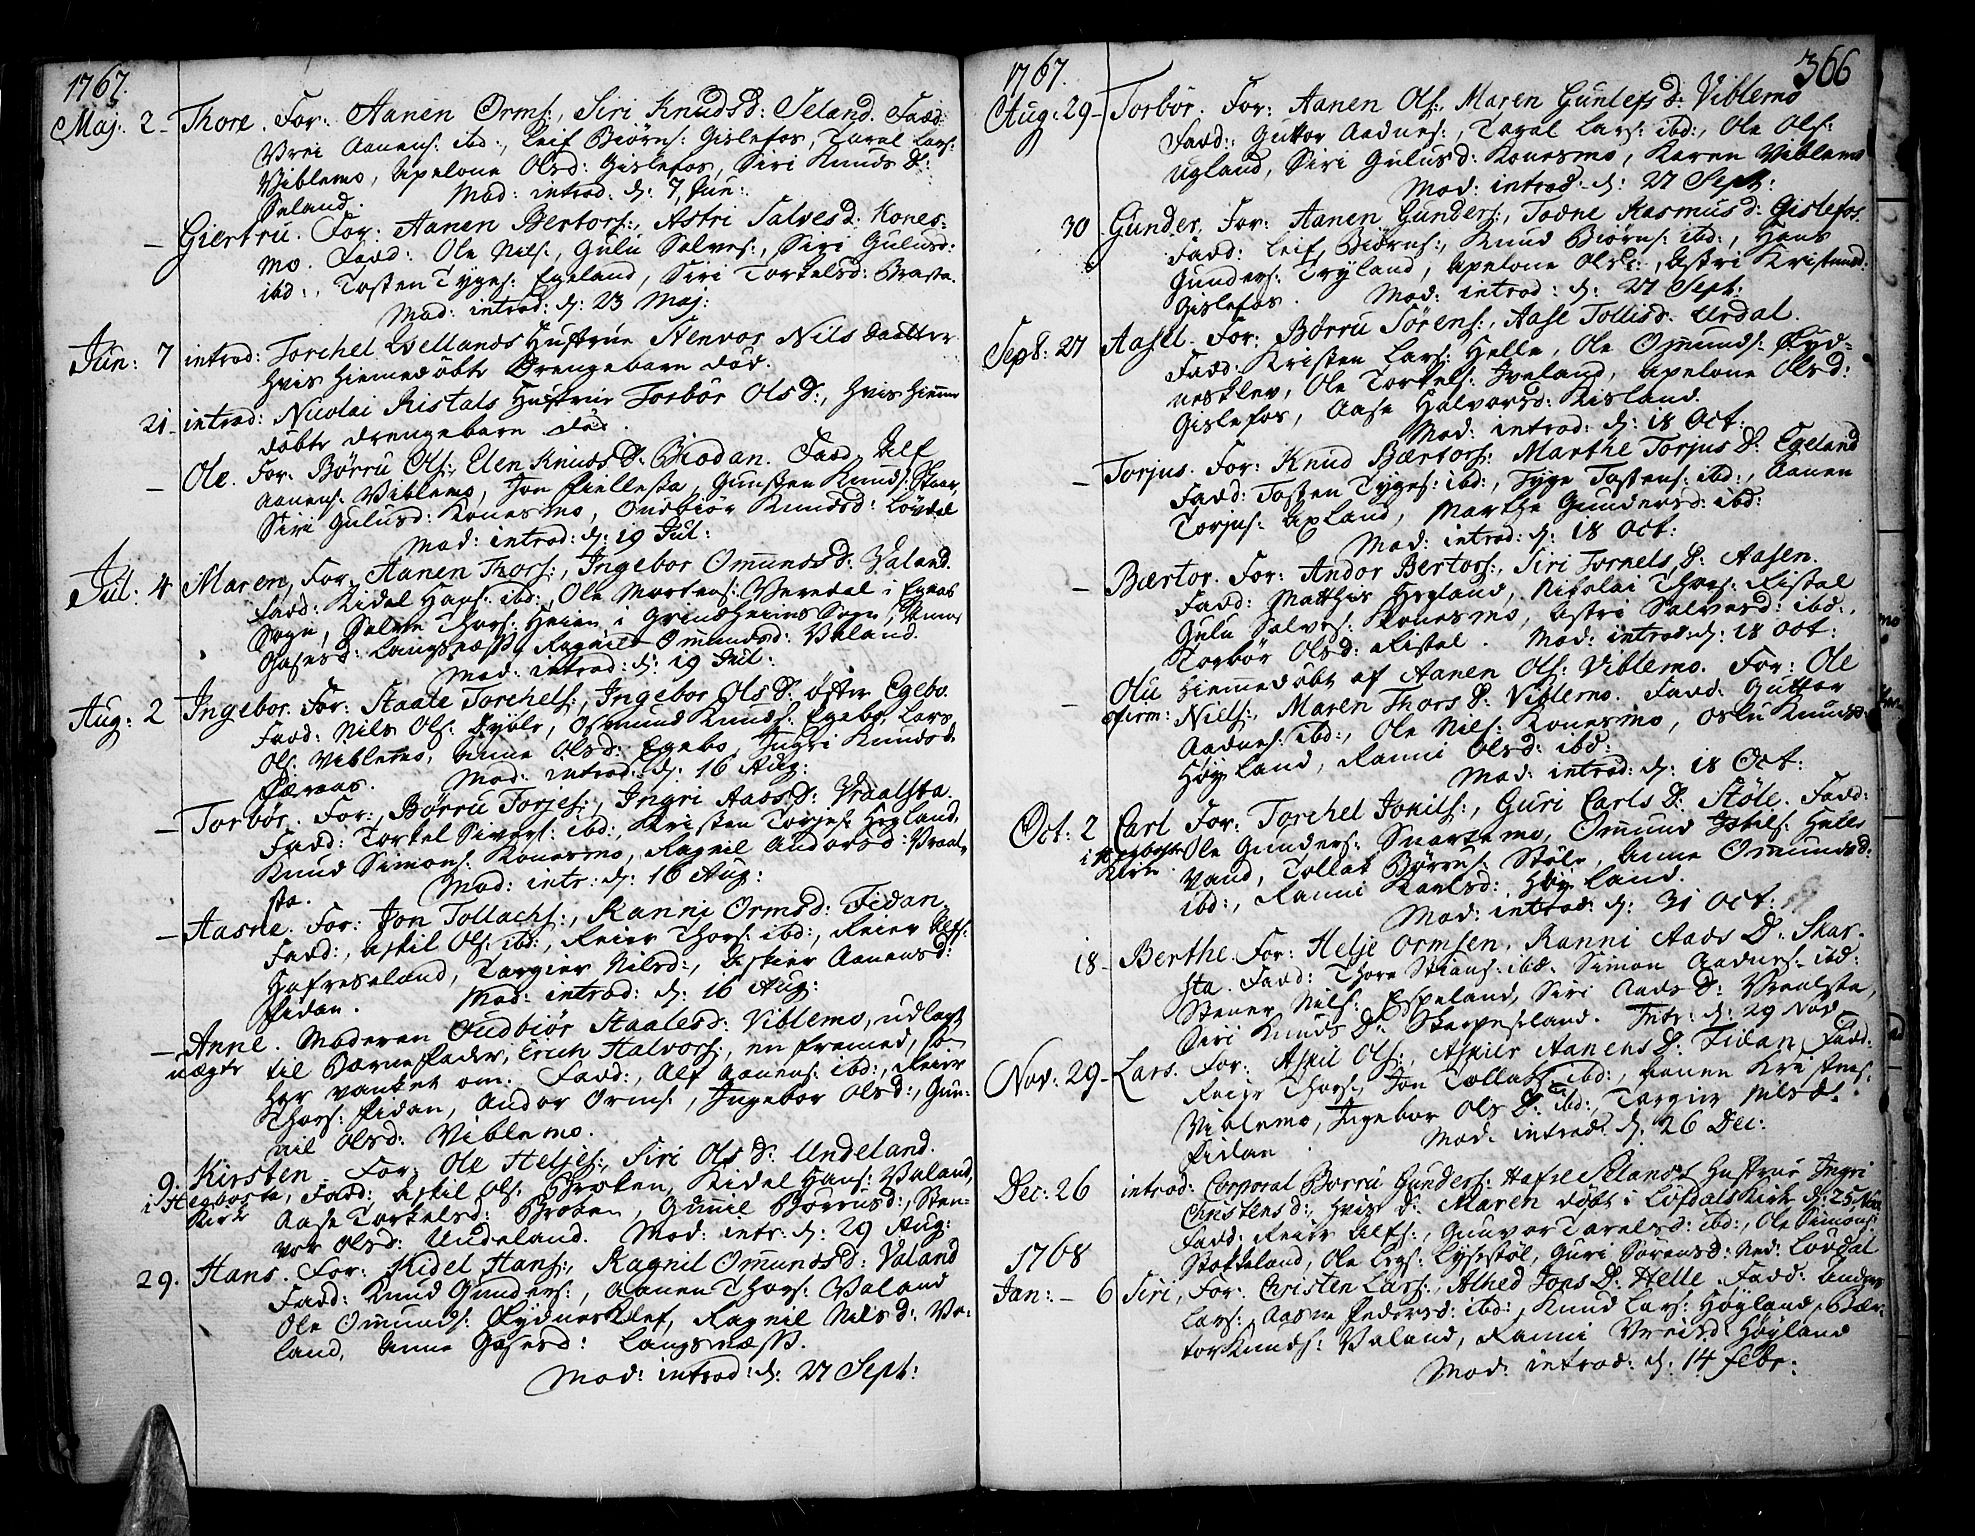 1767.
Maj: 2 - Thore. For: Aanen Orms:, Siri Knudsd: Seland. Fadd:
Vrei Aanens: ibd:, Leif Biørns: Gislefos, Tarel Lars:
Viblemo, Apelone Olsd: Gislefos, Siri Knuds D:
Seland. Mod: introd: d: 7 Jun:
- Giertru. For: Aanen Bertors:, Astri Salvesd: Kones-
mo. Fadd: Ole Nils:, Gulu Salves:, Siri Gulusd:
ibd:, Tosten Tyges: Egeland, Siri Torkelsd:
Mod: introd: d: 23 Maj:
Jun: 7 introd: Torchel Hustrue Stenvor Nils Daatter
hvis hiemedøbte Drengebarn død.
21- introd: Nicolai Ristals Hustrue Torbor Ols D:, hvis hieme
døbte drengebarn død.
- Ole. For: Børru Ols:, Elen Knuds D: Birdan. Fadd: Alf
Aanens: Viblemo, Jon Gunsten Knuds:
Siri Gulusd: Konesmo, Gudbiør Knudsd: Løvdal
Mod: introd: d: 19 Jul:
Jul: 4 Maren, For: Aanen Thors:, Ingebor Omunds D: Valand.
Fadd: Kidel Hans: ibd:, Ole Mortens: i
Sogn, Salve Thors: Heien i Grindheims Sogn, Anne
Langenæss, Ragnil Omundsd: Valand.
Mod: introd: d: 19 Jul:
Aug: 2 Ingebor. For: Staale Torchels:, Ingebor Ols D: øfter Egebo.
Fadd: Nils Ols: Osmund Knuds: Egebo, Lars
Ols: Viblemo, Anne Olsd: Egebo, Ingri Knudsd:
Mod: introd: d: 16 Aug:
- Torbør. For: Børru Torjes:, Ingri Aads D: Vraalsta.
Fadd: Torkel Sivers: ibd:, Kristen Torges: Hegland,
Knud Simons: Konesmo, Ragnil Andorsd: Vraal-
sta. Mod: intr: d: 16 Aug:
- Aasne. For: Jon Tollachs:, Ranni Ormsd: Fidan,
Fadd: Askil Ols: ibd:, Reier Thors: ibd:, Reier Alfs:
Hafreseland, Targier Nilsd:, Askier Aanensd:
Fidan. Mod: introd: d: 16 Aug:
- Anne. Moderen Gudbiør Staalesd: Viblemo, udlagt
nægte til Barnefader, Erich Halvors:, en fremed, som
her vanket om. Fadd:, Alf Aanens: ibd:, Reier
Thors: Fidan, Andor Orms:, Ingebor Olsd:, Gun-
nil Olsd: Viblemo.
9. Kirsten. For: Ole Heljes:, Siri Ols D: Undeland.
i Hegbosta Kirk Fadd: Askil Ols: Broken, Kidel Hans: Valand,
Aase Torkelsd: Broken, Gunil Børrusd:, Sten-
vor Olsd: Undeland. Mod: intr: d: 29 Aug:
29. Hans. For: Kidel Hans:, Ragnil Omunds D: Valand
Fadd: Knud Gunders:, Aanen Thors: Valand
Ole Omunds: Rydnesklef, Ragnil Nilsd: Va-
land, Anne Langsnæss.
Mod: introd: d: 27 Sept:
1767. 366
Aug: 29 - Torbør. For: Aanen Ols:, Maren Gunlefs D: Viblemo
Fadd: Guttor Aadnes:, Taral Lars: ibd:, Ole Ols:
Ugland, Siri Gulusd: Konesmo, Karen Viblemo
Mod: introd: d: 27 Sept:
30 Gunder. For: Aanen Gunders:, Todne Rasmusd: Gislefos.
Fadd: Leif Biørns:, Knud Biørns: ibd:, Hans
Gunders: Tryland, Apelone Olsd:, Astri Kristensd:
Gislefos. Mod: introd: d: 27 Sept:
Sept: 27 Aasel. For: Børru Sørens:, Aase Tollisd: Urdal.
Fadd: Kristen Lars: Helle, Ole Omunds: Ryd-
nesklev, Ole Torkels: Iveland, Apelone Olsd:
Gislefos, Aase Halvorsd: Risland.
Mod: introd: d: 18 Oct:
- Torjus. For: Knud Bærtors: Marthe Torjus D: Egeland
Fadd: Tosten Tyges: ibd:, Tyge Tostens: ibd:, Aanen
Torjus: Apland, Marthe Gundersd: ibd:
Mod: introd: d: 18 Oct:
- Bærtor. For: Andor Bertors:, Siri Tornels D: Aasen.
Fadd: Matthis Hegland, Nikolai Thors: Ristal
Gulu Salves: Konesmo, Astri Salvesd: ibd:,
Torbør Olsd: Ristal. Mod: introd: d: 18 Oct:
- Olu hiemedøbt af Aanen Ols: Viblemo. For: Ole
Niels:, Maren Thors D: Viblemo. Fadd: Guttor
Aadnes: ibd:, Ole Nils: Konesmo, Oslu Knudsd:
Høyland, Ranni Olsd: ibd:
Mod: introd: d: 18 Oct:
Oct: 2 Carl For: Torchel Jonils:, Guri Carls D: Støle. Fadd:
i Hegbosta Kirk Ole Gunders: Snartemo, Omund Helle
Vand, Tollak Børrus: Støle, Anne Omundsd:
ibd:, Ranni Karlsd: Høyland.
Mod: introd: d: 31 Oct:
18- Berthe. For: Helje Ormsen, Ranni Aads D: Skar-
sta. Fadd: Thore ibd: Simon Aadnes: ibd:
Stener Nils: Espeland, Siri Aads D: Vraalsta,
Siri Knuds D: Skarpeseland. Intr: d: 29 Nov
Nov: 29 - Lars. For: Askil Ols:, Askier Aanens D: Fidan. Fadd:
Reier Thors:, Jon Tollaks: ibd:, Aanen Kristens:
Viblemo, Ingebor Ols D: ibd:, Targier Nilsd:
Fidan. Mod: introd: d: 26 Dec:
Dec: 26 introd: Corporal Børru Gunders: Hafreselands Hustrue Ingri
Christensd:, hvis D: Maren døbt i Løfdals Kirk d: 25 Nov:
Fadd: Reier Alfs:, Gunvor Tarelsd: ibd:, Ole Simons:
Stokkeland, Ole Lysestøl, Guri Sørensd: Ned: Løvdal
1768
Jan: - 6 Siri, For: Christen Lars:, Alhed Jons D: Helle. Fadd: Anders
Lars:, Aasne Pedersd: ibd:, Knud Lars: Høyland, Bær-
tor Knuds: Valand, Ranni Vreisd: Høyland
Mod: introd: d: 14 Febr: